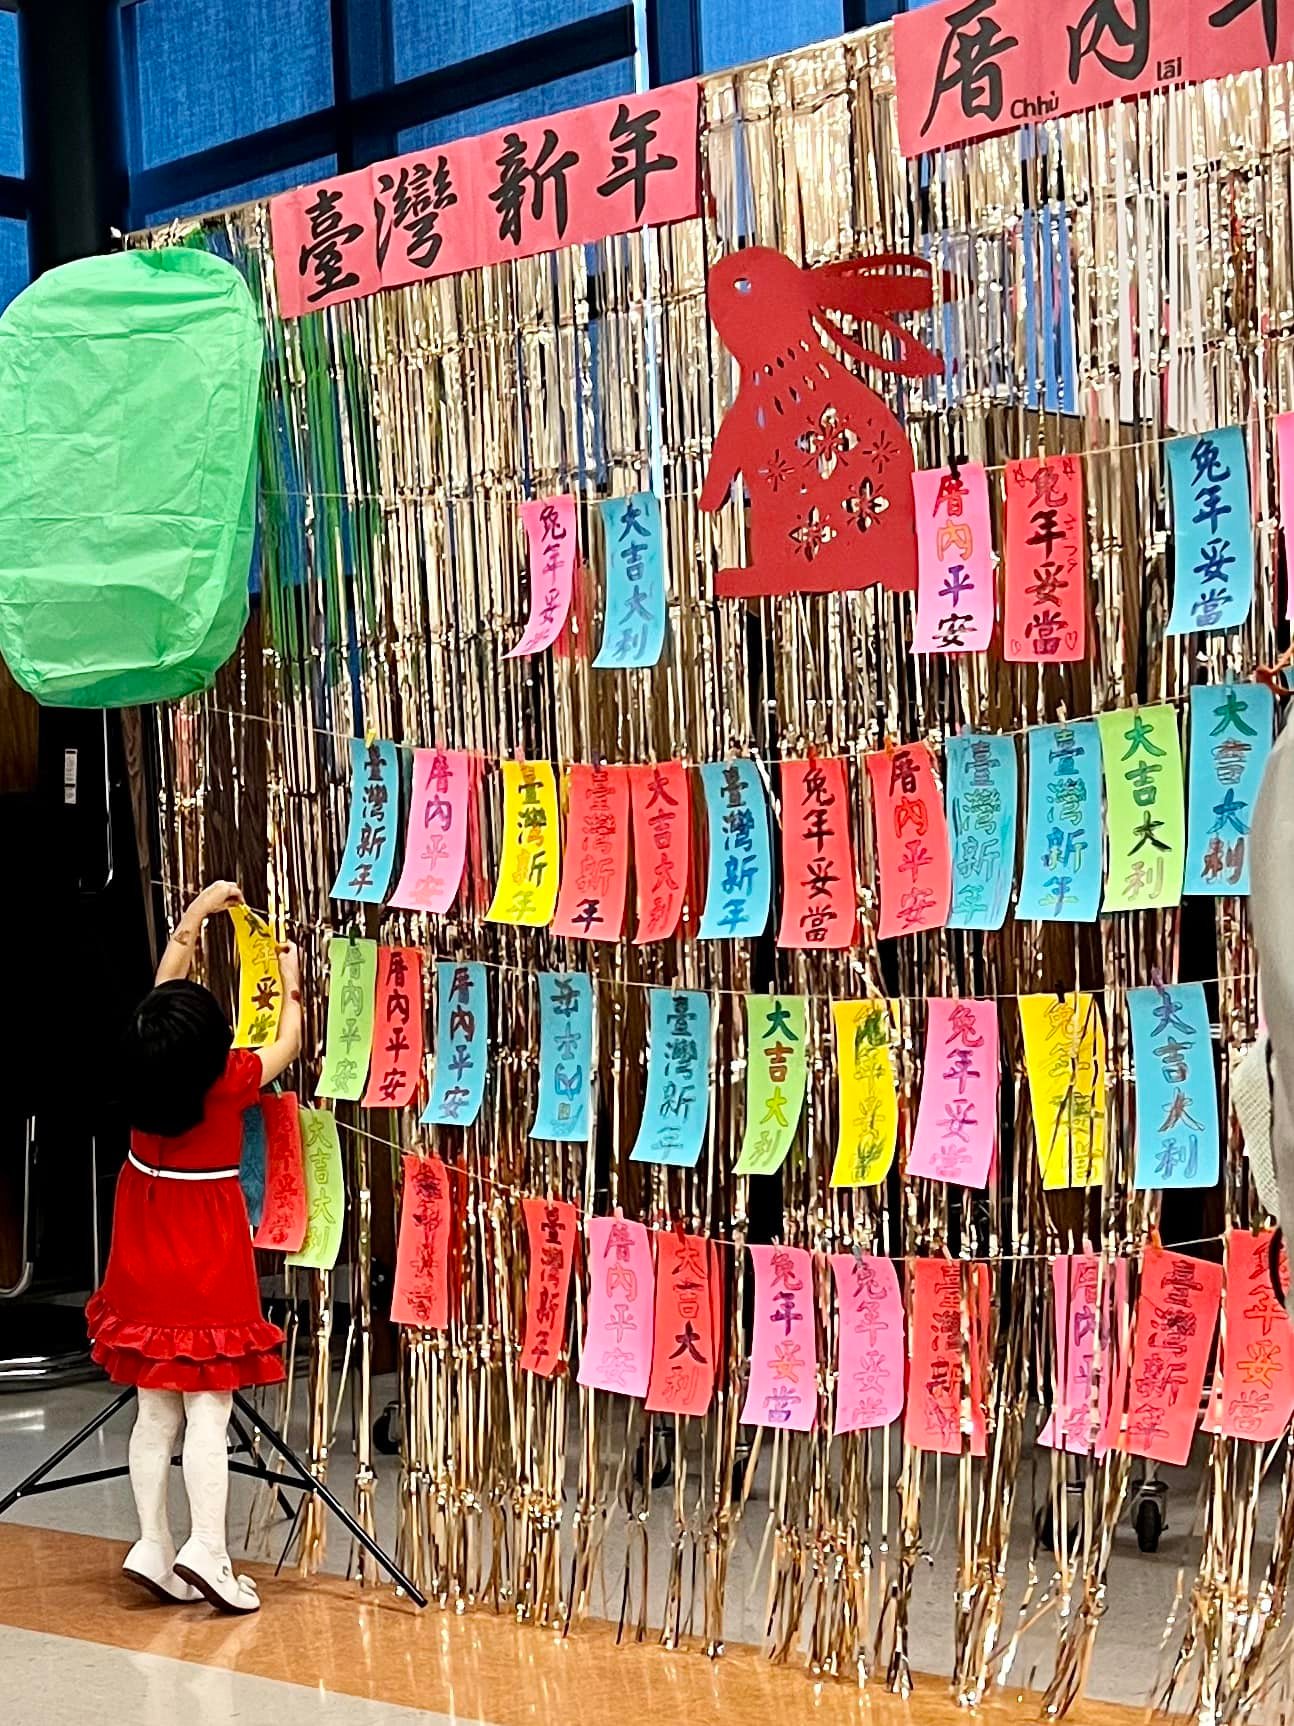 臺灣新年
厝內
Chhù lāi
兔年妥
大吉大利
厝內平安
兔年妥當
兔年妥當
臺灣新年
厝內平安
臺灣新年
臺灣新年
大吉大利
臺灣新年
兔年妥當
厝內平安
臺灣新年
臺灣新年
大吉大利
大吉大利
年妥當
厝內平安
厝內平安
厝內平安
臺灣新年
大吉大利
兔年妥當
兔年妥當
大吉大利
年妥當
大吉大利
臺灣新年
厝內平安
大吉大利
兔年妥當
兔年妥當
臺灣新年
內平安
臺灣新年
年妥當